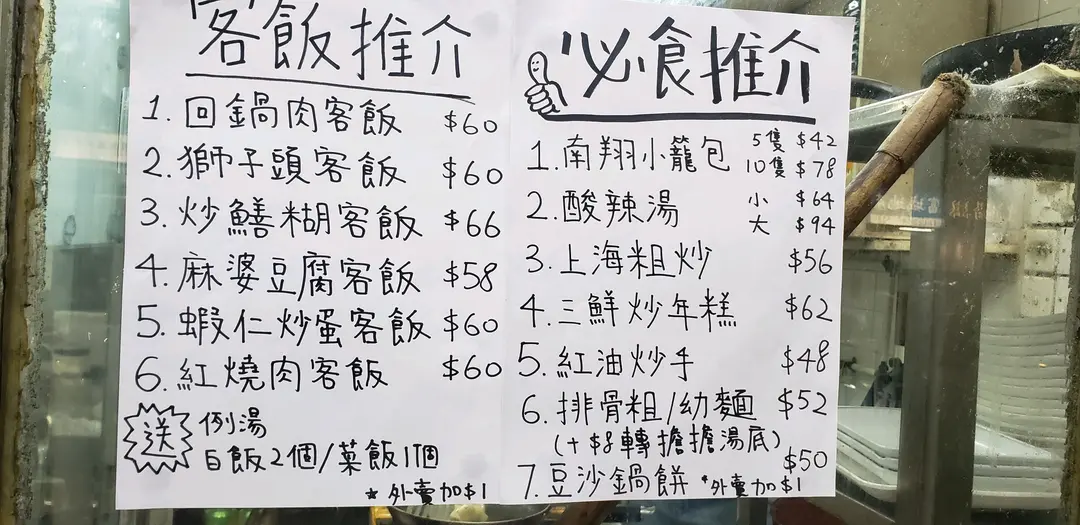 客飯推介
1. 回鍋肉客飯 $60
2. 獅子頭客飯 $60
3. 炒鱔糊客飯 $66
4. 麻婆豆腐客飯 $58
5. 蝦仁炒蛋客飯 $60
6. 紅燒肉客飯 $60
送 例湯
白飯2個/菜飯1個
* 外賣加$1
必食推介
1. 南翔小籠包 5隻 $42
10隻 $78
2. 酸辣湯 小 $64
大 $94
3. 上海粗炒 $56
4. 三鮮炒年糕 $62
5. 紅油炒手 $48
6. 排骨粗/幼麵 $52
(+$8轉擔擔湯底)
7. 豆沙鍋餅 $50
*外賣加$1